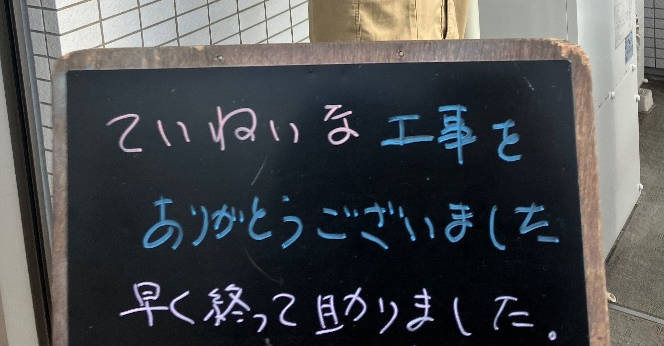 ていねいな工事を
ありがとうございました
早く終って助かりました。